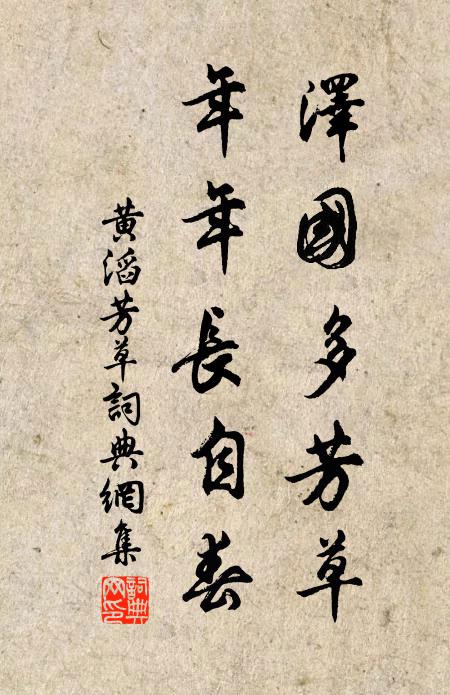 澤國多芳草
年年長自春
黃滔芳草詞典網集
詞典網印